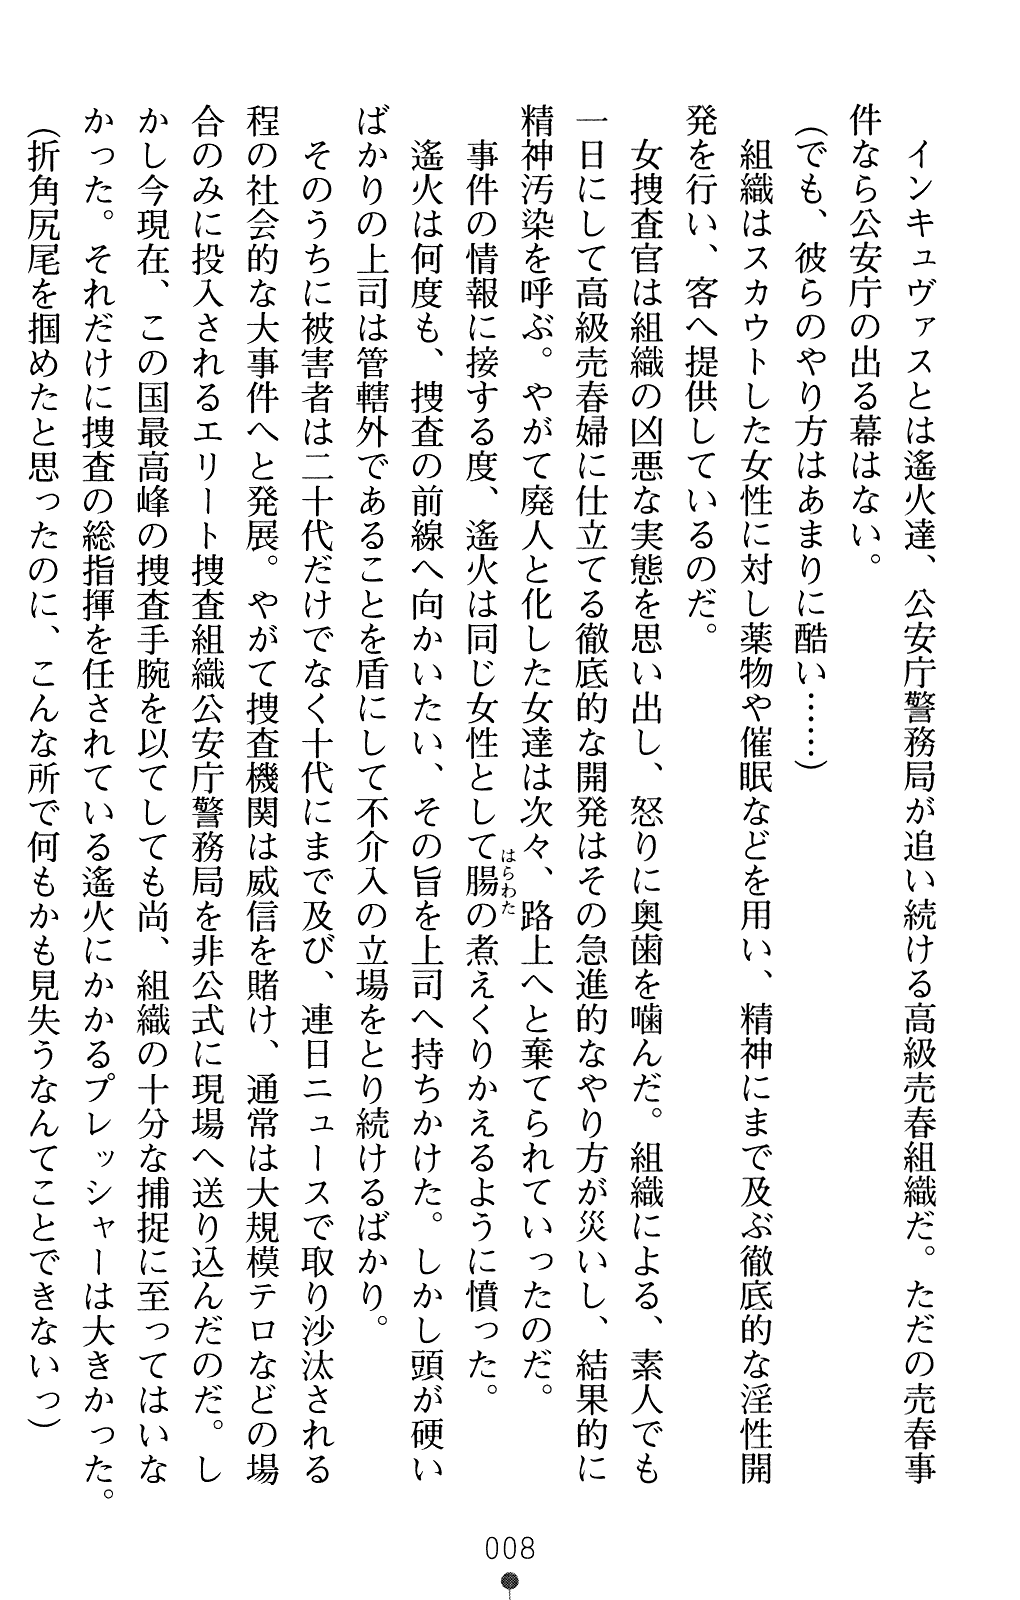 インキュヴァスとは遙火達、公安庁警務局が追い続ける高級売春組織だ。ただの売春事
件なら公安庁の出る幕はない。
(でも、彼らのやり方はあまりに酷い……)
組織はスカウトした女性に対し薬物や催眠などを用い、精神にまで及ぶ徹底的な淫性開
発を行い、客へ提供しているのだ。
女捜査官は組織の凶悪な実態を思い出し、怒りに奥歯を噛んだ。組織による、素人でも
一日にして高級売春婦に仕立てる徹底的な開発はその急進的なやり方が災いし、結果的に
精神汚染を呼ぶ。やがて廃人と化した女達は次々、路上へと棄てられていったのだ。
事件の情報に接する度、遙火は同じ女性として腸の煮えくりかえるように憤った。
はらわた
遙火は何度も、捜査の前線へ向かいたい、その旨を上司へ持ちかけた。しかし頭が硬い
ばかりの上司は管轄外であることを盾にして不介入の立場をとり続けるばかり。
そのうちに被害者は二十代だけでなく十代にまで及び、連日ニュースで取り沙汰される
程の社会的な大事件へと発展。やがて捜査機関は威信を賭け、通常は大規模テロなどの場
合のみに投入されるエリート捜査組織公安庁警務局を非公式に現場へ送り込んだのだ。し
かし今現在、この国最高峰の捜査手腕を以てしても尚、組織の十分な捕捉に至ってはいな
かった。それだけに捜査の総指揮を任されている遙火にかかるプレッシャーは大きかった。
(折角尻尾を掴めたと思ったのに、こんな所で何もかも見失うなんてことできないっ)
008